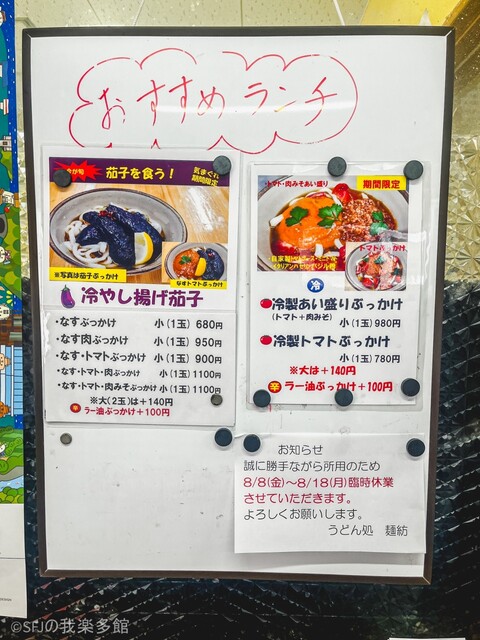 おすすめランチ
今が旬
茄子を食う！
気まぐれ
期間限定
※写真は茄子ぶっかけ
なすトマトぶっかけ
冷やし揚げ茄子
・なすぶっかけ 小（1玉）680円
・なす肉ぶっかけ 小（1玉）950円
・なす・トマトぶっかけ 小（1玉）900円
・なす・トマト・肉ぶっかけ 小（1玉）1100円
・なす・トマト・肉みそぶっかけ 小（1玉）1100円
※大（2玉）は＋140円
辛 ラー油ぶっかけ＋100円
・トマト・肉みそあい盛り
期間限定
トマトぶっかけ
冷
冷製あい盛りぶっかけ
（トマト＋肉みそ） 小（1玉）980円
冷製トマトぶっかけ
小（1玉）780円
※大は＋140円
辛 ラー油ぶっかけ＋100円
お知らせ
誠に勝手ながら所用のため
8/8(金)～8/18(月)臨時休業
させていただきます。
よろしくお願いします。
うどん処 麺紡
©SFJの我楽多館